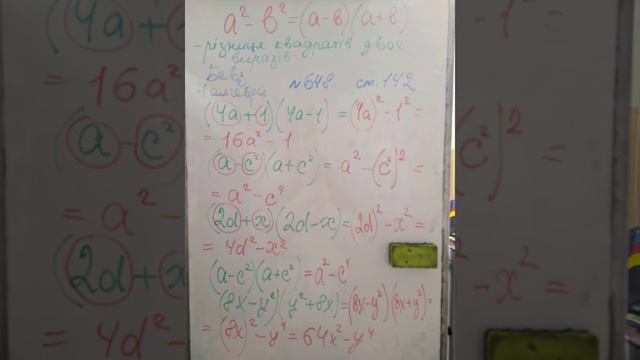 a² - в² = (a-в)(a+в)
- різниця квадратів двох
виразів
Бевз №648 ст. 142
алгебра
(4a+1)(4a-1) = (4a)² - 1² =
= 16a² - 1
(a-c²)(a+c²) = a² - (c²)² =
= a² - c⁴
(2d+x)(2d-x) = (2d)² - x² =
= 4d² - x²
(a-c²)(a+c²) = a² - c⁴
(8x-y²)(y²+8x) = (8x-y²)(8x+y²) =
= (8x)² - y⁴ = 64x² - y⁴